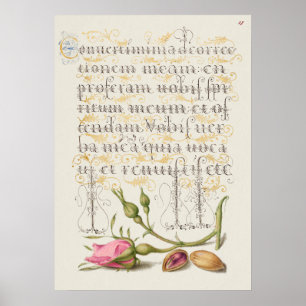 Conuertimini ad correc
tionem meam: en
proferam uobis spi
ritum meum: et os
tendam Vobis uer
ba mea: quia uoca
ui et renuistis etc